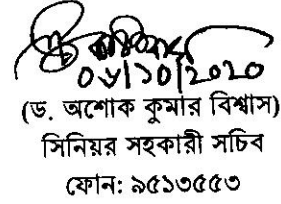 ০৮/১০/২০২০
(ড. অশোক কুমার বিশ্বাস)
সিনিয়র সহকারী সচিব
ফোন: ৯৫১৩৫৫৩